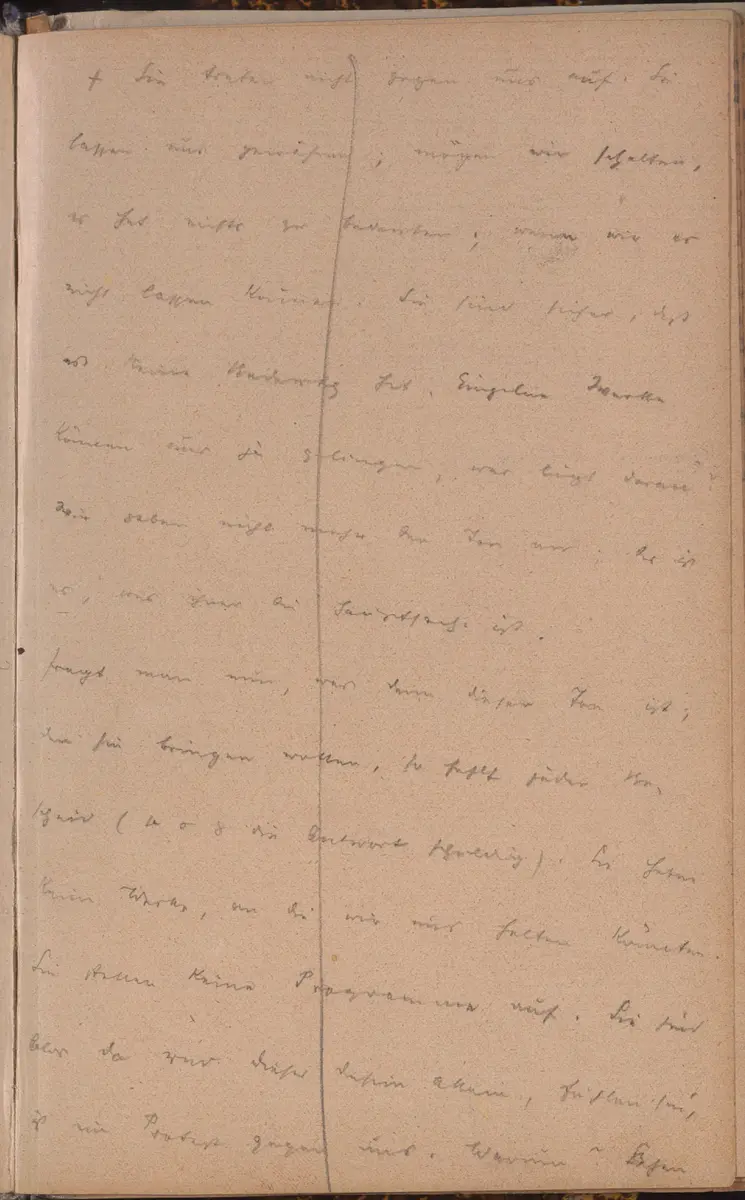 + Sie treten nicht gegen uns auf. Sie
lassen uns gewähren; mögen wir schalten,
es hat nichts zu bedeuten; wenn wir es
nicht lassen können. Sie sind sicher, daß
es keine Bedeutg hat. Einzelne Werke
können uns ja gelingen, was liegt daran?
Wir geben nicht mehr den Ton an. das ist
es, was ihnen die Hauptsache ist.
fragt man nun, was denn dieser Ton ist,
den sie bringen wollen, so fehlt jeder Be-
scheid ( die Antwort schuldig). Sie haben
kein Werke, an die wir uns halten könnten.
Sie stellen keine Programme auf. Sie sind
blos da und dieses dasein allein, fühlen sie,
ist ein Protest gegen uns. Warum?